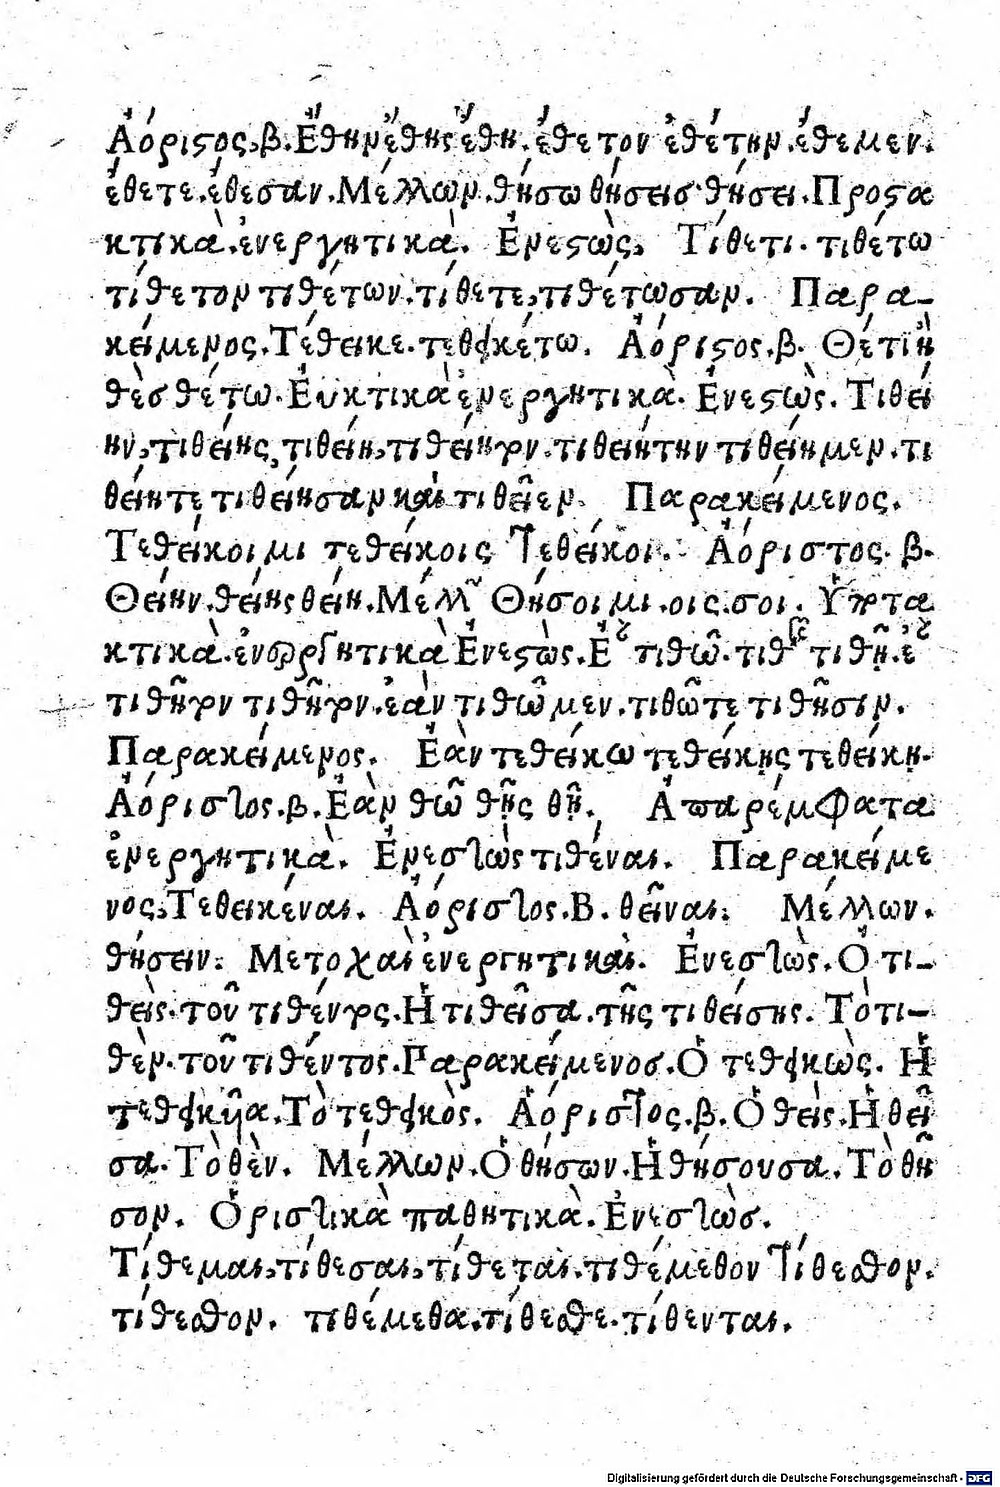 Ἀόριϛος,β.Ἔθην ἔθης ἔθη.ἔθετον ἐθέτην.ἔθεμεν.
ἔθετε.ἔθεσαν.Μέλλων.θήσω θήσεισ θήσει.Προςα
κτικὰ.ἐνεργητικὰ. Ἐνεϛὼς, Τίθετι. τιθέτω
τίθετον τιθέτων.τίθετε,τιθέτωσαν. Παρα-
κείμενος.Τέθεικε.τεθφκέτω. Ἀόριϛος.β. Θέτι ἢ
θὲσ θέτω.Εὐκτικὰ ἐνεργητικὰ. Ἐνεϛὼς. Τιθεί
ην,τιθείης,τιθείη,τιθείητον.τιθειήτην τιθείημεν.τι
θείητε τιθείησαν καὶ τιθεῖεν. Παρακείμενος.
Τεθείκοιμι τεθείκοις Τεθείκοι. Ἀόριστος. β.
Θείην.θείης θείη.Μέλλ῀ Θήσοιμι.οις.σοι. Ὑποτα
κτικὰ.ἐνεργητικὰ Ἐνεϛὼς.Ἐ τιθῶ.τιθ τιθῇ.ἐ
τιθῆτον τιθῆτον.ἐὰν τιθῶμεν.τιθῶτε τιθῆσιν.
Παρακείμενος. Ἐὰν τεθείκω τεθείκῃς τεθείκῃ.
Ἀόριστος.β.Ἐὰν θῶ θῇς θῇ. Ἀπαρέμφατα
ἐνεργητικὰ. Ἐνεστὼς τιθέναι. Παρακείμε
νος,Τεθεικέναι. Ἀόριστος.Β. θεῖναι. Μέλλων.
θήσειν. Μετοχαὶ ἐνεργητικαὶ. Ἐνεστὼς.Ὁ τι-
θεὶς.τοῦ τιθέντος.Ἡ τιθεῖσα.τῆς τιθείσης. Τὸ τι-
θὲν.τοῦ τιθέντος.Παρακείμενοσ.Ὁ τεθφκὼς. Ἡ
τεθφκῦια.Τὸ τεθφκὸς. Ἀόριστος.β.Ὁ θεὶς.Ἡ θεῖ
σα.Τὸ θὲν. Μέλλων.Ὁ θήσων.Ἡ θήσουσα.Τὸ θῆ
σον. Ὁριστικὰ παθητικὰ.Ἐνεστὼσ.
Τίθεμαι,τίθεσαι,τίθεται.τιθέμεθον Τίθεσθον.
τίθεσθον. τιθέμεθα.τίθεσθε.τίθενται.
Digitalisierung gefördert durch die Deutsche Forschungsgemeinschaft - DFG